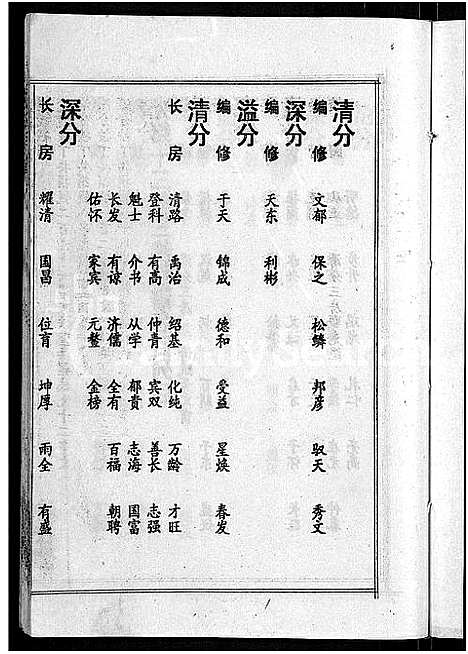 清分
编修 文郁 保之 松鳞 邦彦 驭天 秀文
深分
编修 天东 利彬
溢分
编修 于天 锦成 德和 受益 星焕 春发
清分
长房 清路 禹治 绍基 化纯 万龄 才旺
登科 有高 仲青 宾双 善长 志强
魁士 介书 从学 郁贵 志海 国富
长发 有谅 济儒 全有 百福 朝聘
佑怀 家宾 元鳌 金榜
深分
长房 耀清 国昌 位育 坤厚 雨全 有盛